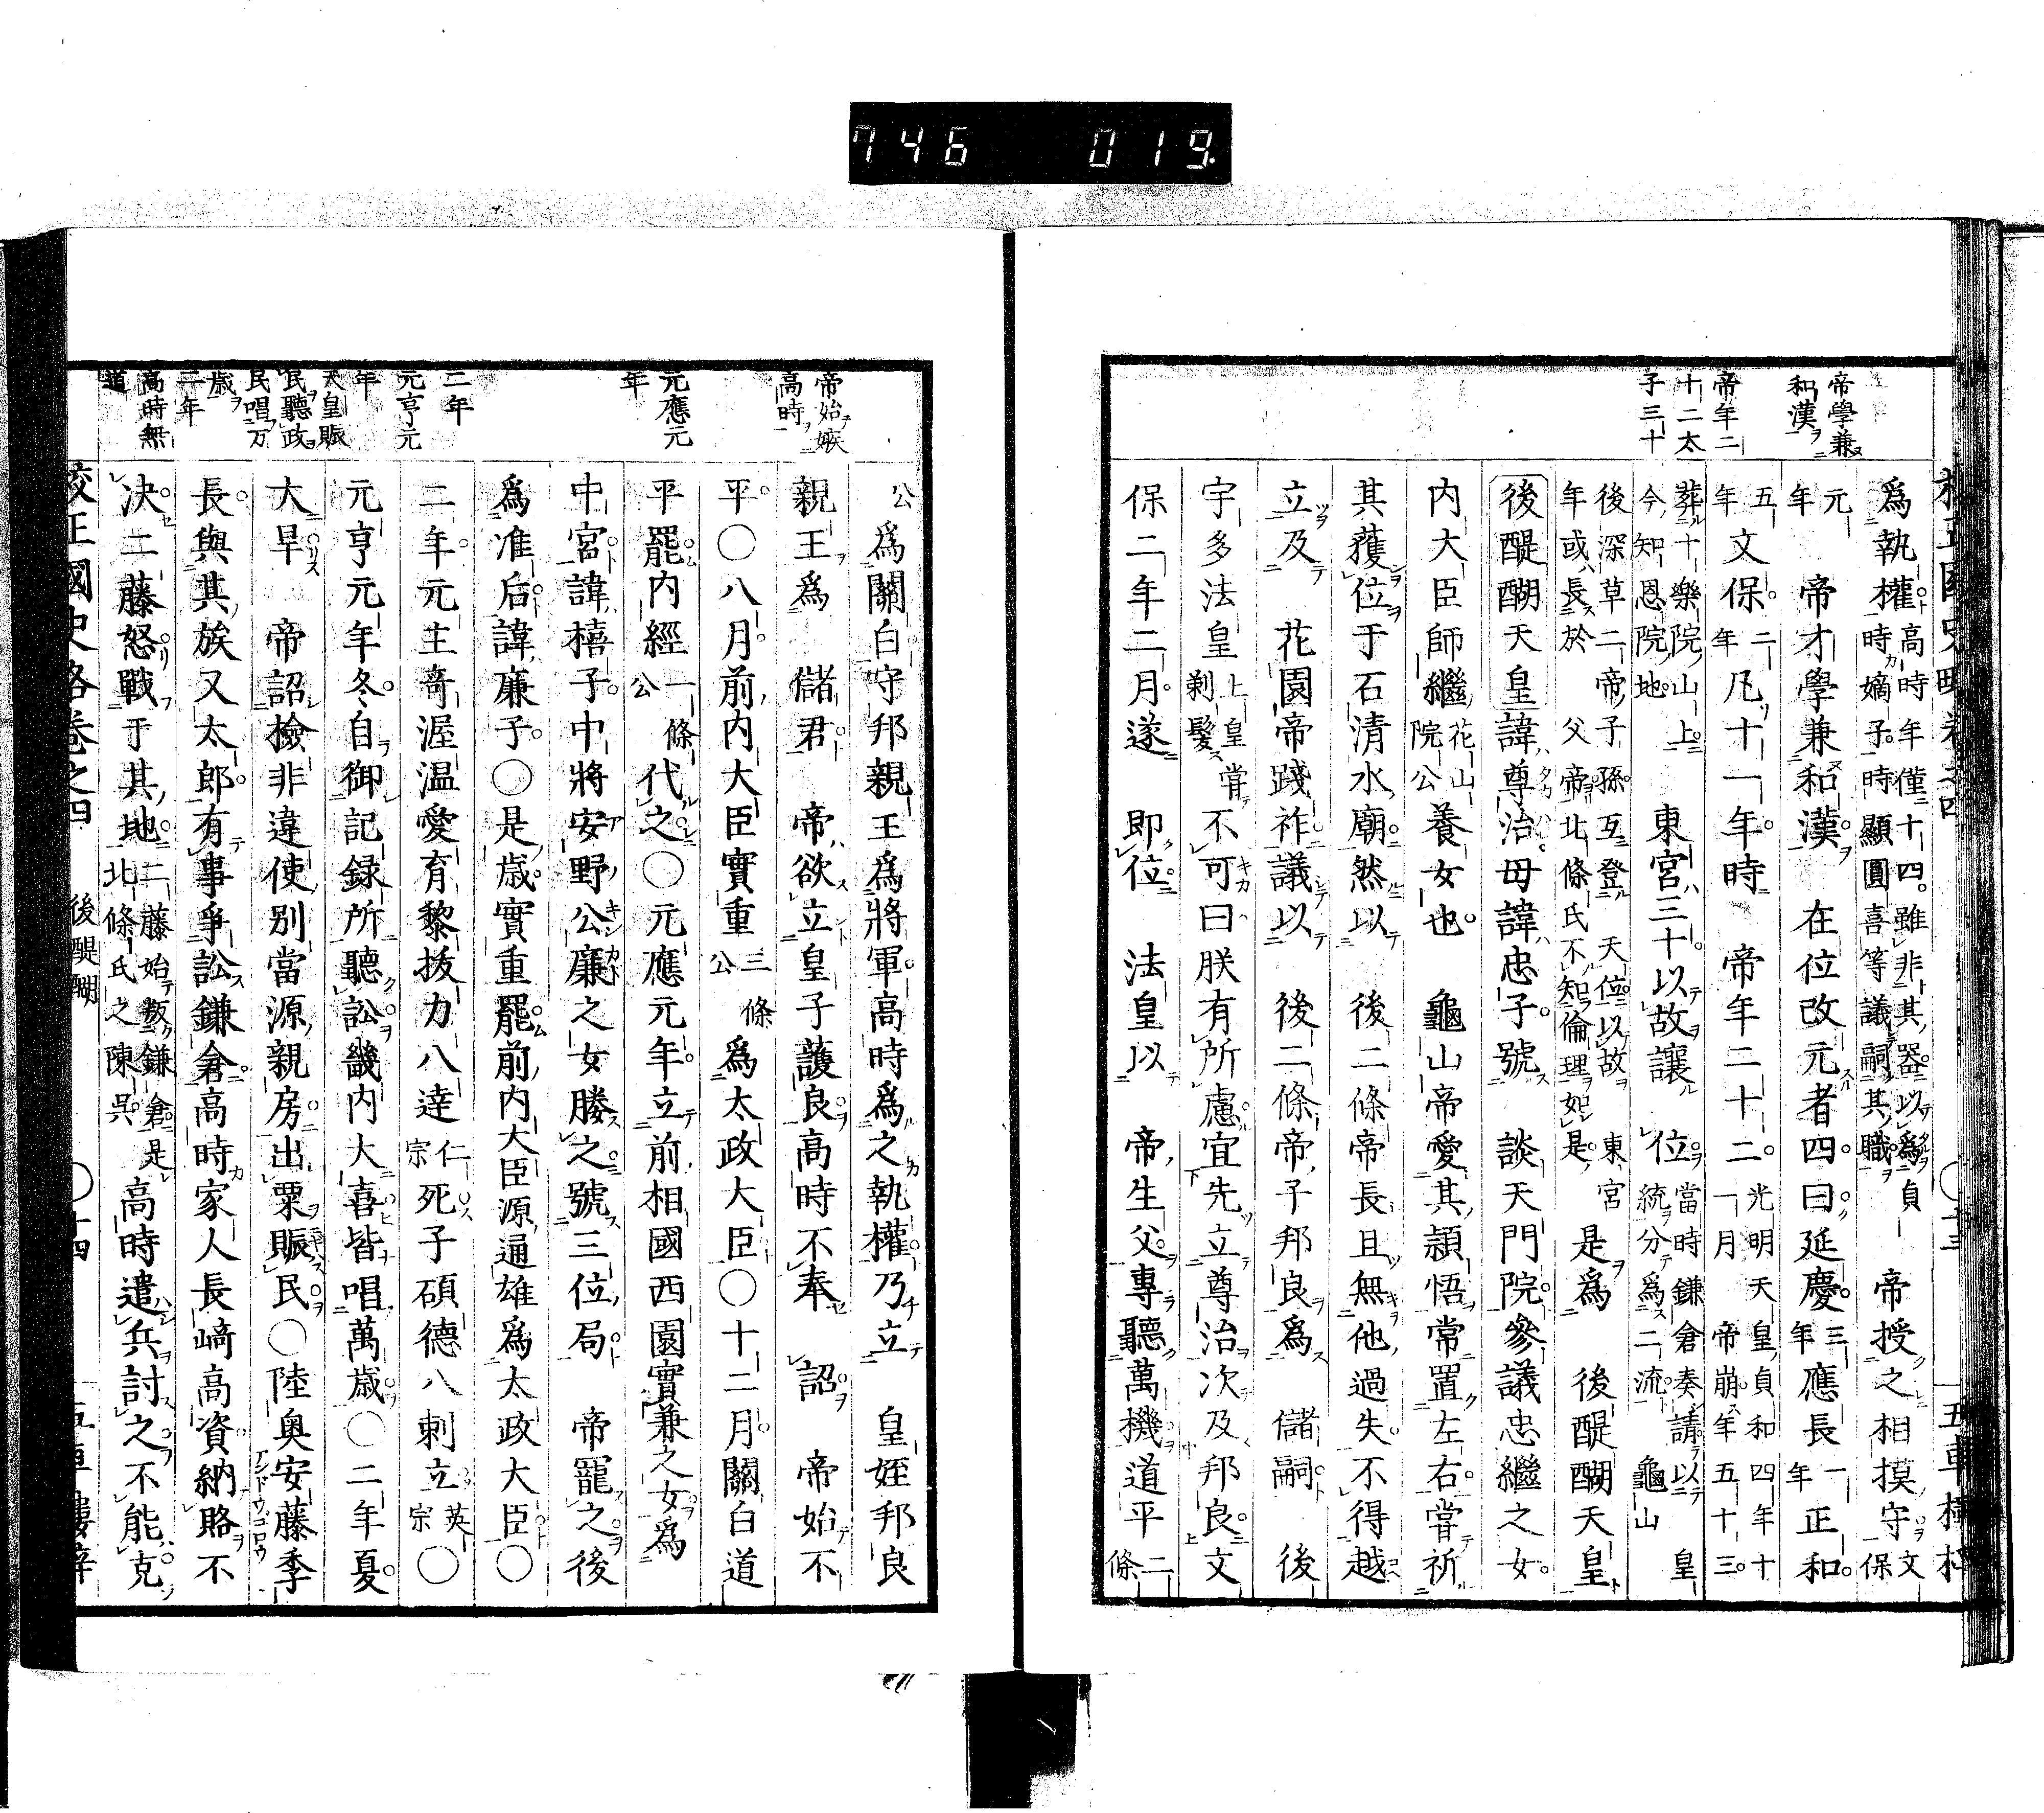 746 019
帝學兼
和漢
帝年二
十二太
子三十
爲執權高時年僅十四雖非其器以爲貞時嫡子時顯圓喜等議嗣其職 帝授之相摸守文保
元年 帝才學兼和漢 在位改元者四曰延慶三年應長一年正和
五年文保二年凡十一年時 帝年二十二光明天皇貞和四年十一月帝崩年五十三
葬十樂院山上今知恩院地 東宮三十以故讓 位當時鎌倉奏請以龜山 皇統分爲二流
後深草二帝子孫互登 天位以故東宮年或長於父帝北條氏不知倫理如是 是爲 後醍醐天皇
後醍醐天皇諱尊治母諱忠子號 談天門院參議忠繼之女
内大臣師繼花山院公養女也 龜山帝愛其頴悟常置左右嘗祈
其獲位于石清水廟然以 後二條帝長且無他過失不得越
立及 花園帝踐祚議以 後二條帝子邦良爲 儲嗣 後
宇多法皇上皇嘗剃髮不可曰朕有所慮宜先立尊治次及邦良文
保二年二月遂 即位 法皇以 帝生父專聽萬機道平二條
帝始嫉
高時
元應元
年
二年
元亨元
年
天皇賑
民聽政
民唱万
歳
二年
高時無
道
公爲關白守邦親王爲將軍高時爲之執權乃立 皇姪邦良
親王爲 儲君 帝欲立皇子護良高時不奉 詔 帝始不
平〇八月前内大臣實重三條公爲太政大臣〇十二月關白道
平罷内經一條公代之〇元應元年立前相國西園實兼之女爲
中宮諱禧子中將安野公廉之女媵之號三位局 帝寵之後
爲准后諱廉子〇是歳實重罷前内大臣源通雄爲太政大臣〇
二年元主奇渥温愛育黎拔力八達仁宗死子碩德八剌立英宗〇
元亨元年冬自御記録所聽訟畿内大喜皆唱萬歳〇二年夏
大旱 帝詔檢非違使別當源親房出粟賑民〇陸奥安藤季
長與其族又太郎有事爭訟鎌倉高時家人長﨑高資納賂不
決二藤怒戰于其地二藤始叛鎌倉是北條氏之陳呉 高時遣兵討之不能克
校正國史略卷之四 後醍醐 〇十四